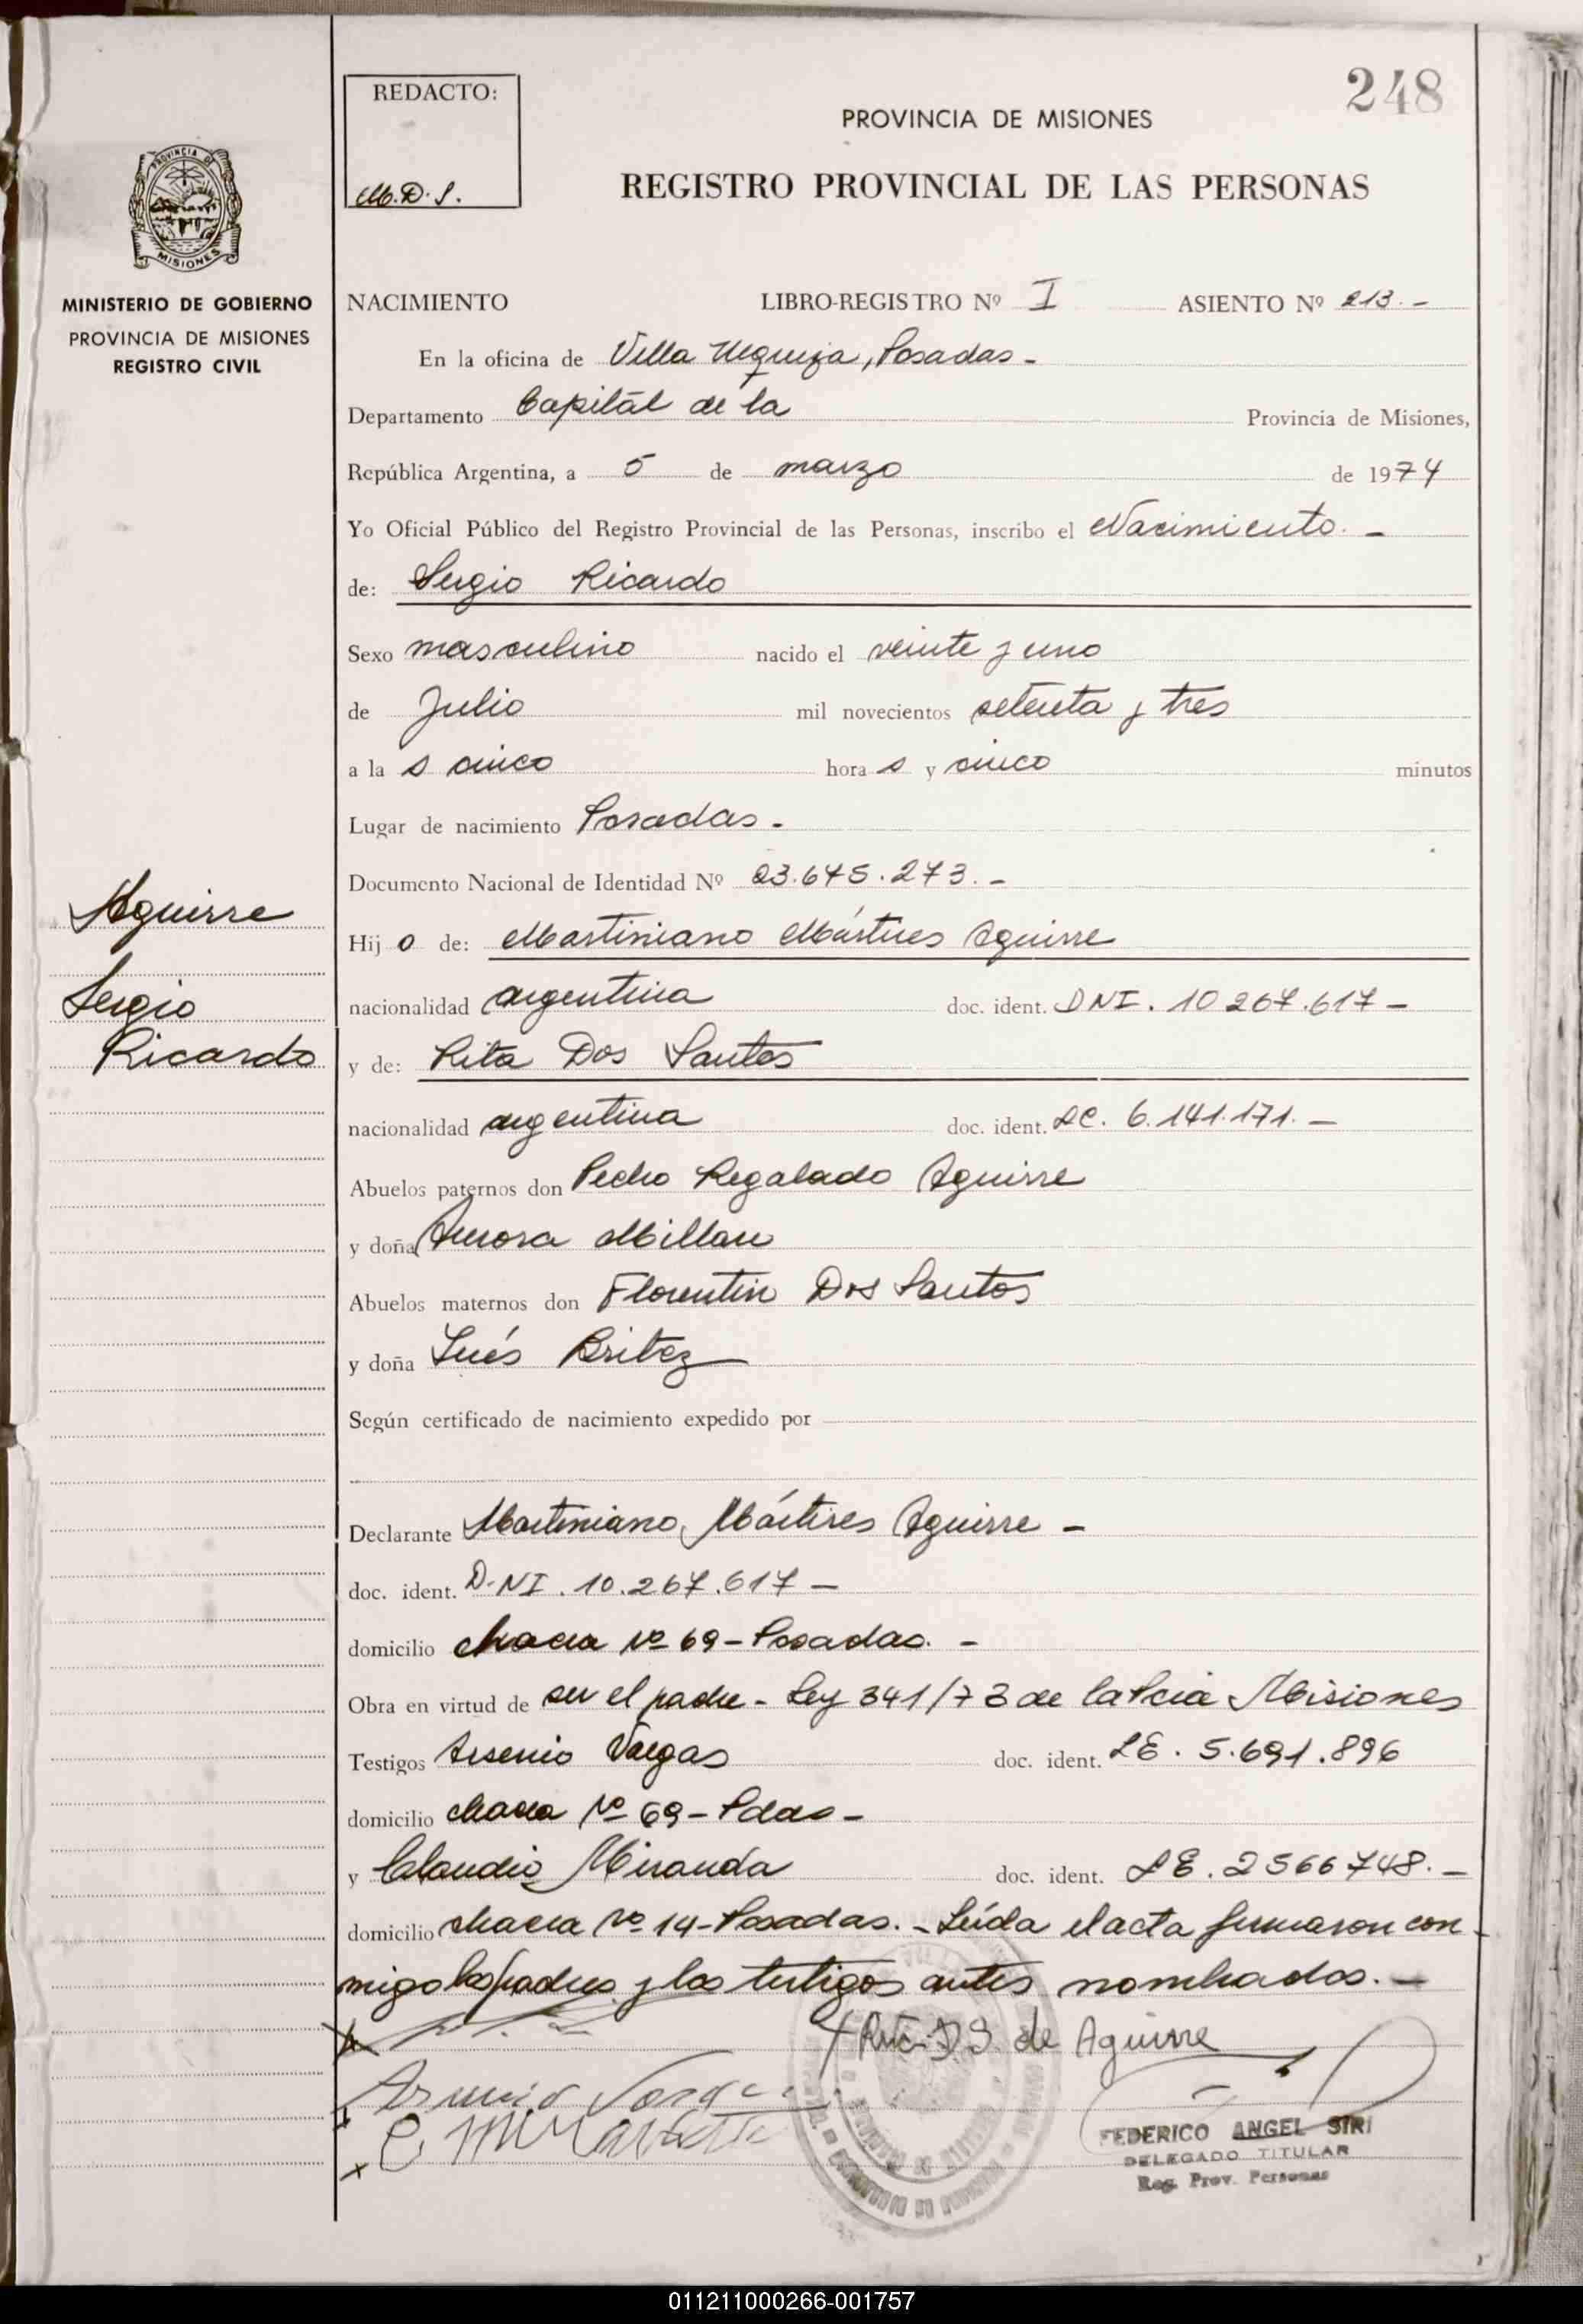 248
REDACTO:
M.D.S.
PROVINCIA DE MISIONES
REGISTRO PROVINCIAL DE LAS PERSONAS
PROVINCIA DE
MISIONES
MINISTERIO DE GOBIERNO
PROVINCIA DE MISIONES
REGISTRO CIVIL
NACIMIENTO LIBRO-REGISTRO Nº I ASIENTO Nº 213.-
En la oficina de Villa Urquiza, Posadas-
Departamento Capital de la Provincia de Misiones,
República Argentina, a 5 de marzo de 1974
Yo Oficial Público del Registro Provincial de las Personas, inscribo el Nacimiento.-
de: Sergio Ricardo
Sexo masculino nacido el veinte y uno
de Julio mil novecientos setenta y tres
a la s cinco hora s y cinco minutos
Lugar de nacimiento Posadas-
Documento Nacional de Identidad Nº 23.645.273.-
Aguirre
Sergio
Ricardo
Hij o de: Martiniano Mártires Aguirre
nacionalidad argentina doc. ident. DNI. 10 267.617-
y de: Rita Dos Santos
nacionalidad argentina doc. ident. LC. 6.141.171.-
Abuelos paternos don Pedro Regalado Aguirre
y doña Aurora Millan
Abuelos maternos don Florentin Dos Santos
y doña Inés Britez
Según certificado de nacimiento expedido por
Declarante Martiniano Mártires Aguirre-
doc. ident. D.NI. 10.267.617-
domicilio chacra Nº 69-Posadas.-
Obra en virtud de ser el padre- Ley 341/73 de la Pcia Misiones
Testigos Arsenio Vargas doc. ident. LE. 5.691.896
domicilio chacra Nº 69-Pdas-
y Claudio Miranda doc. ident. LE. 2566748.-
domicilio chacra Nº 14-Posadas.-Leída el acta firmaron con-
migo los padres y los testigos antes nombrados.-
Rita D S. de Aguirre
FEDERICO ANGEL SIRI
DELEGADO TITULAR
Reg. Prov. Personas
011211000266-001757